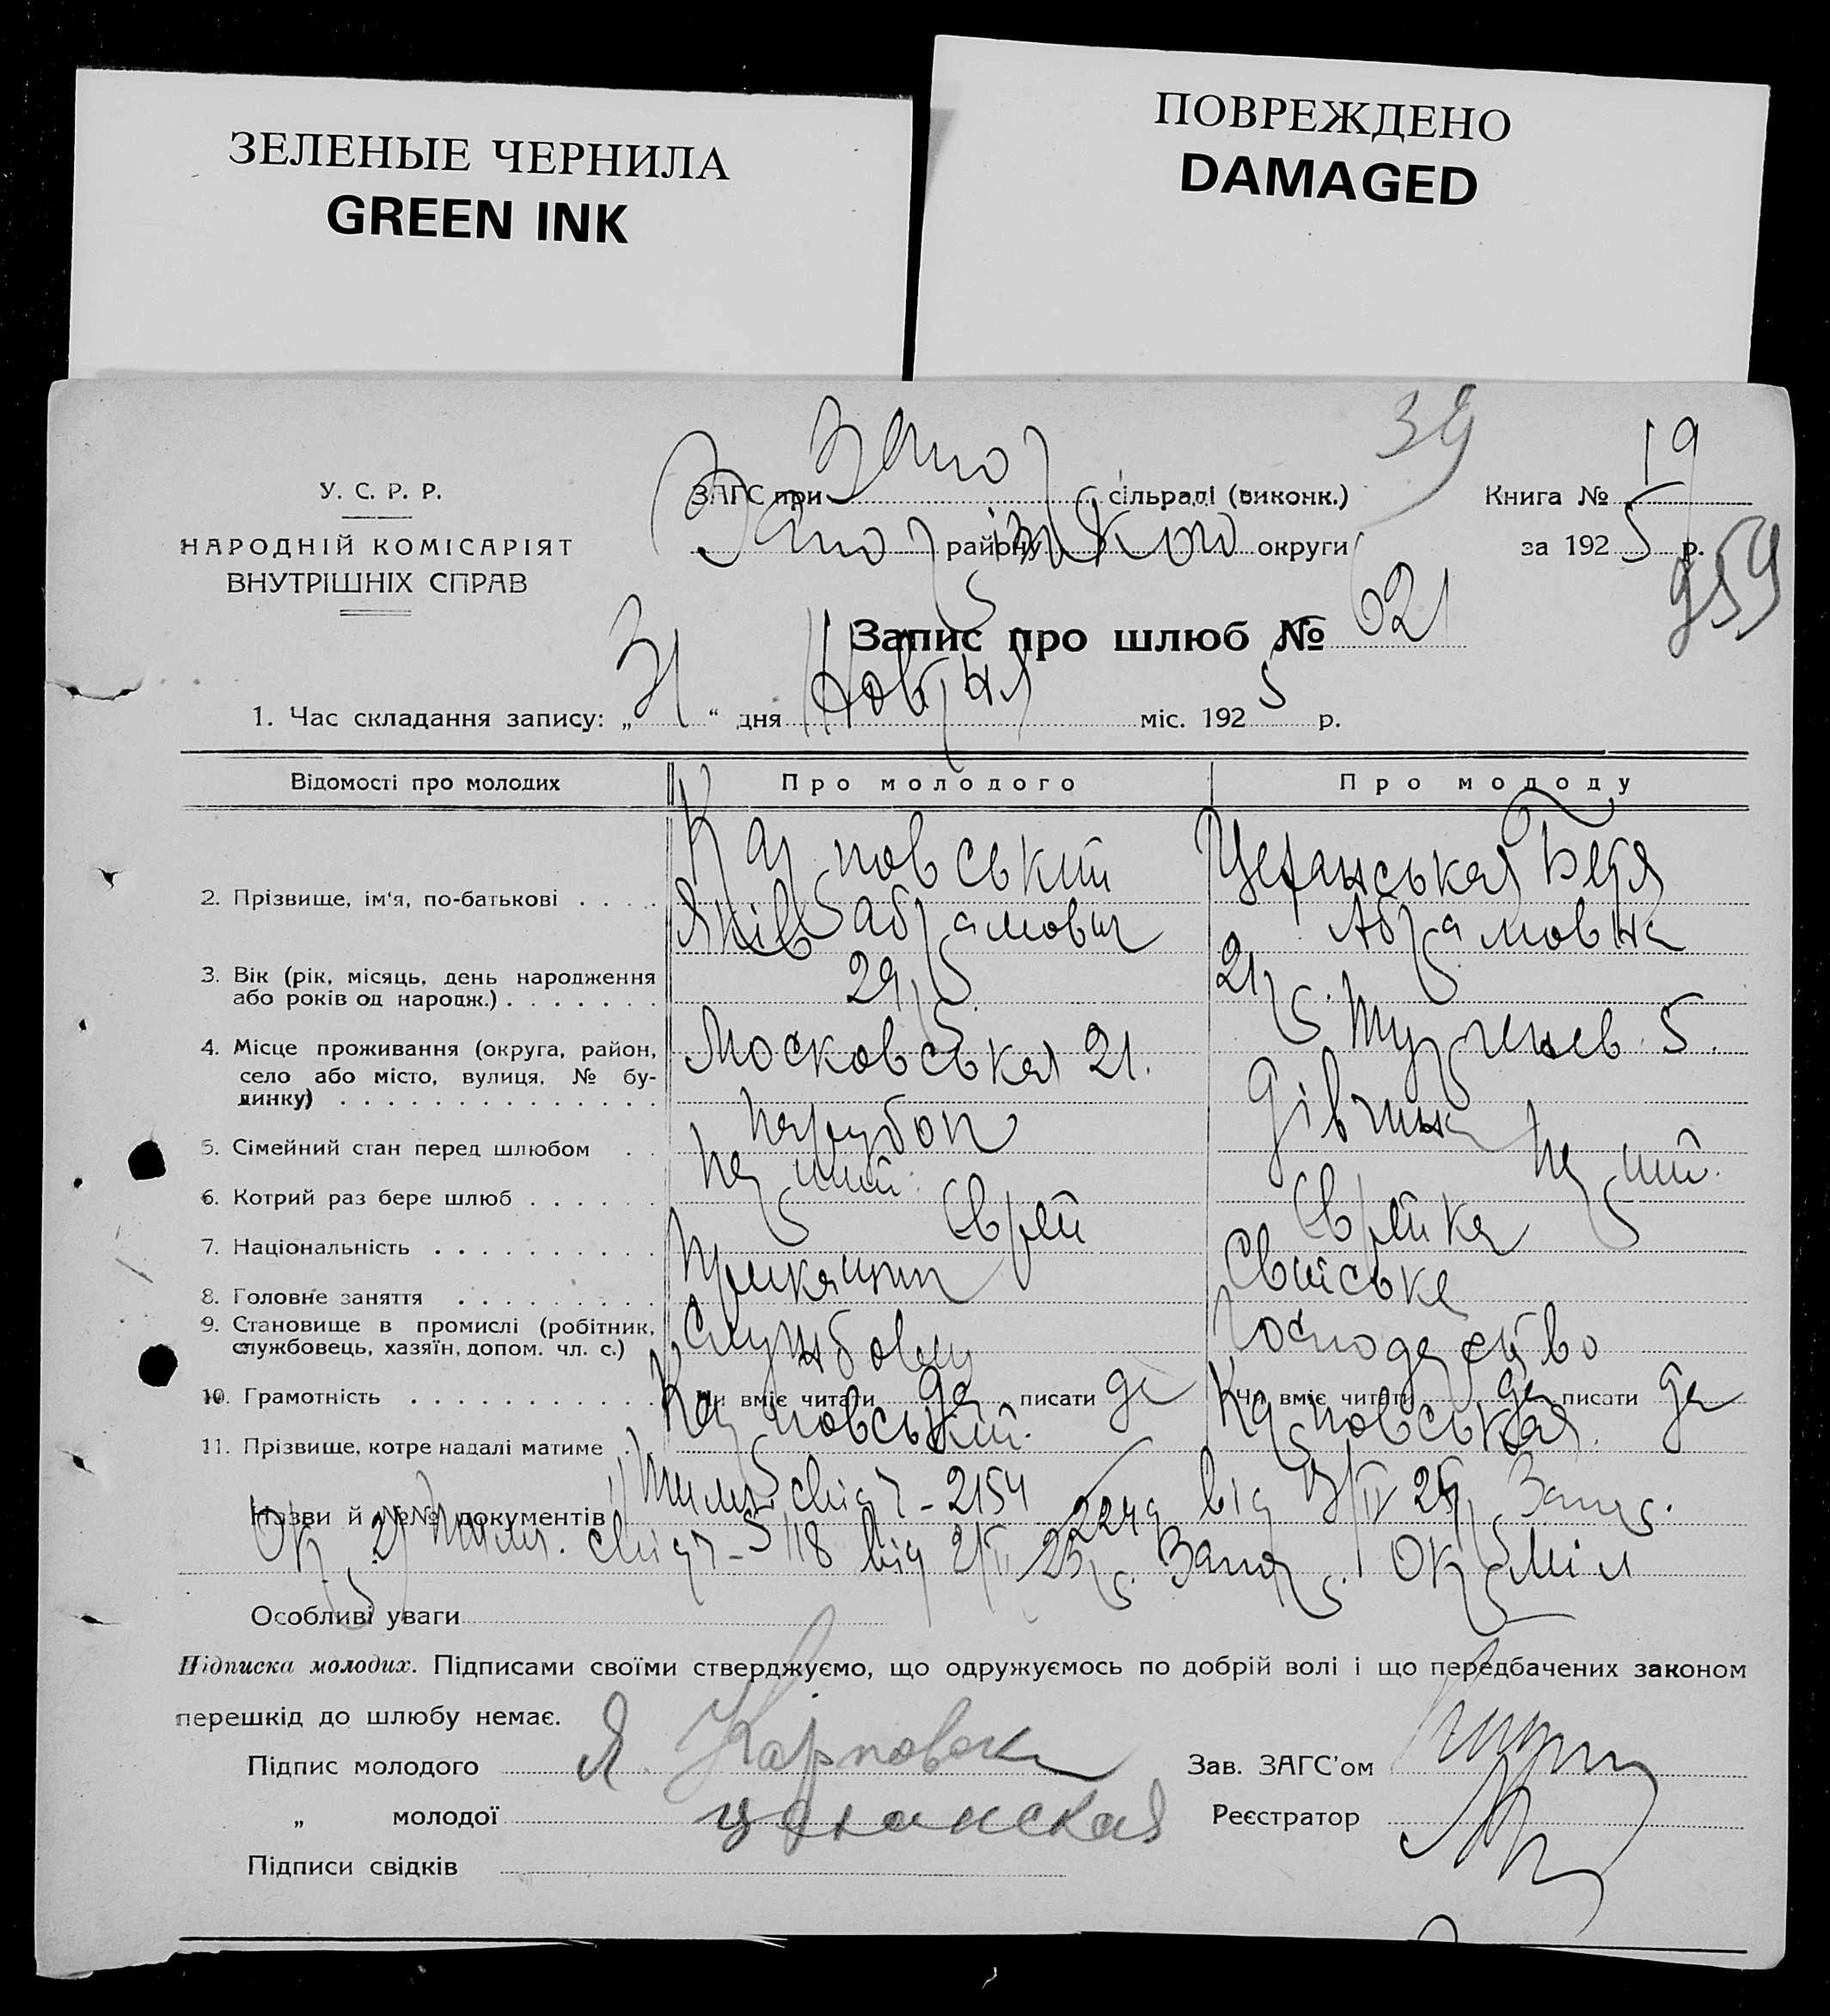 ЗЕЛЕНЫЕ ЧЕРНИЛА
GREEN INK
ПОВРЕЖДЕНО
DAMAGED
39
У. С. Р. Р.
НАРОДНІЙ КОМІСАРІЯТ
ВНУТРІШНІХ СПРАВ
ЗАГС при Запор сільраді (виконк.)
Запоріжжкого району округи
Книга № 19
за 1925 р.
959
Запис про шлюб № 621
1. Час складання запису: „ “ дня Новбря міс. 1925 р.
Відомості про молодих Про молодого Про молоду
2. Прізвище, ім‘я, по-батькові . . . . Карповський Яків Абрамович Цеханськая Бетя Абрамовна
3. Вік (рік, місяць, день народження або років од народж.) . . . . . . . 29 р. 21 р.
4. Місце проживання (округа, район, село або місто, вулиця, № будинку) . . . . . . . . . . . . . . Московськая 21. Тургенев. 5.
5. Сімейний стан перед шлюбом . . парубок дівчина
6. Котрий раз бере шлюб . . . . . . перший перший.
7. Національність . . . . . . . . . . Єврей Єврейка
8. Головне заняття . . . . . . . . . прикащик Свійське
9. Становище в промислі (робітник, службовець, хазяїн, допом. чл. с.) Службовец господарство
10. Грамотність . . . . . . . . . . . . Чи вміє читати да писати да Чи вміє читати да писати да
11. Прізвище, котре надалі матиме . Карповський. Карповськая.
Назви й №№ документів свід 2154 2249 від 25 р. Запор.
Окр. свід 5118 від 25 р. Запор. Окр. Міл
Особливі уваги
Підписка молодих. Підписами своїми стверджуємо, що одружуємось по добрій волі і що передбачених законом
перешкід до шлюбу немає.
Підпис молодого Я. Карповск
„ молодої Цеханская
Підписи свідків
Зав. ЗАГС'ом
Реєстратор